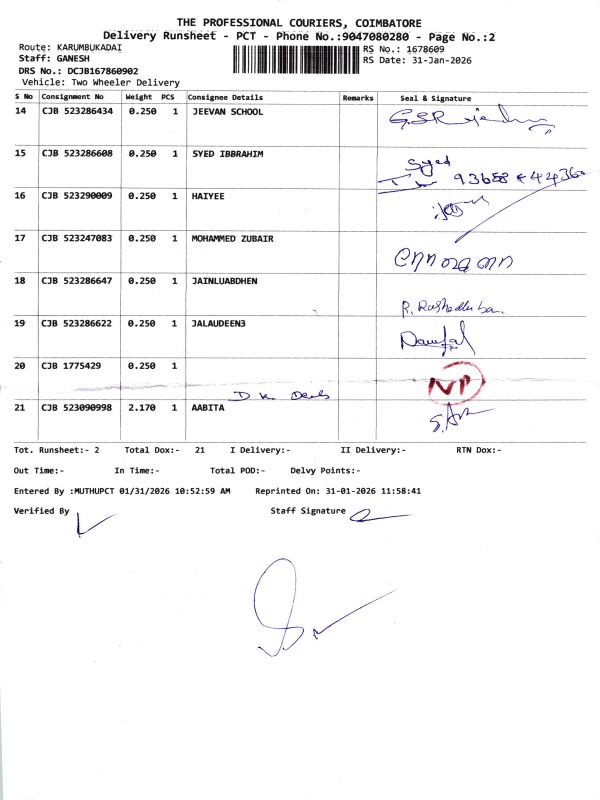 THE PROFESSIONAL COURIERS, COIMBATORE
Delivery Runsheet - PCT - Phone No.:9047080280 - Page No.:2
Route: KARUMBUKADAI RS No.: 1678609
Staff: GANESH RS Date: 31-Jan-2026
DRS No.: DCJB167860902
Vehicle: Two Wheeler Delivery
S No Consignment No Weight PCS Consignee Details Remarks Seal & Signature
14 CJB 523286434 0.250 1 JEEVAN SCHOOL
15 CJB 523286608 0.250 1 SYED IBBRAHIM Syed
16 CJB 523290009 0.250 1 HAIYEE
17 CJB 523247083 0.250 1 MOHAMMED ZUBAIR
18 CJB 523286647 0.250 1 JAINLUABDHEN
19 CJB 523286622 0.250 1 JALAUDEEN3
20 CJB 1775429 0.250 1 NP
21 CJB 523090998 2.170 1 AABITA
Tot. Runsheet:- 2 Total Dox:- 21 I Delivery:- II Delivery:- RTN Dox:-
Out Time:- In Time:- Total POD:- Delvy Points:-
Entered By :MUTHUPCT 01/31/2026 10:52:59 AM Reprinted On: 31-01-2026 11:58:41
Verified By Staff Signature